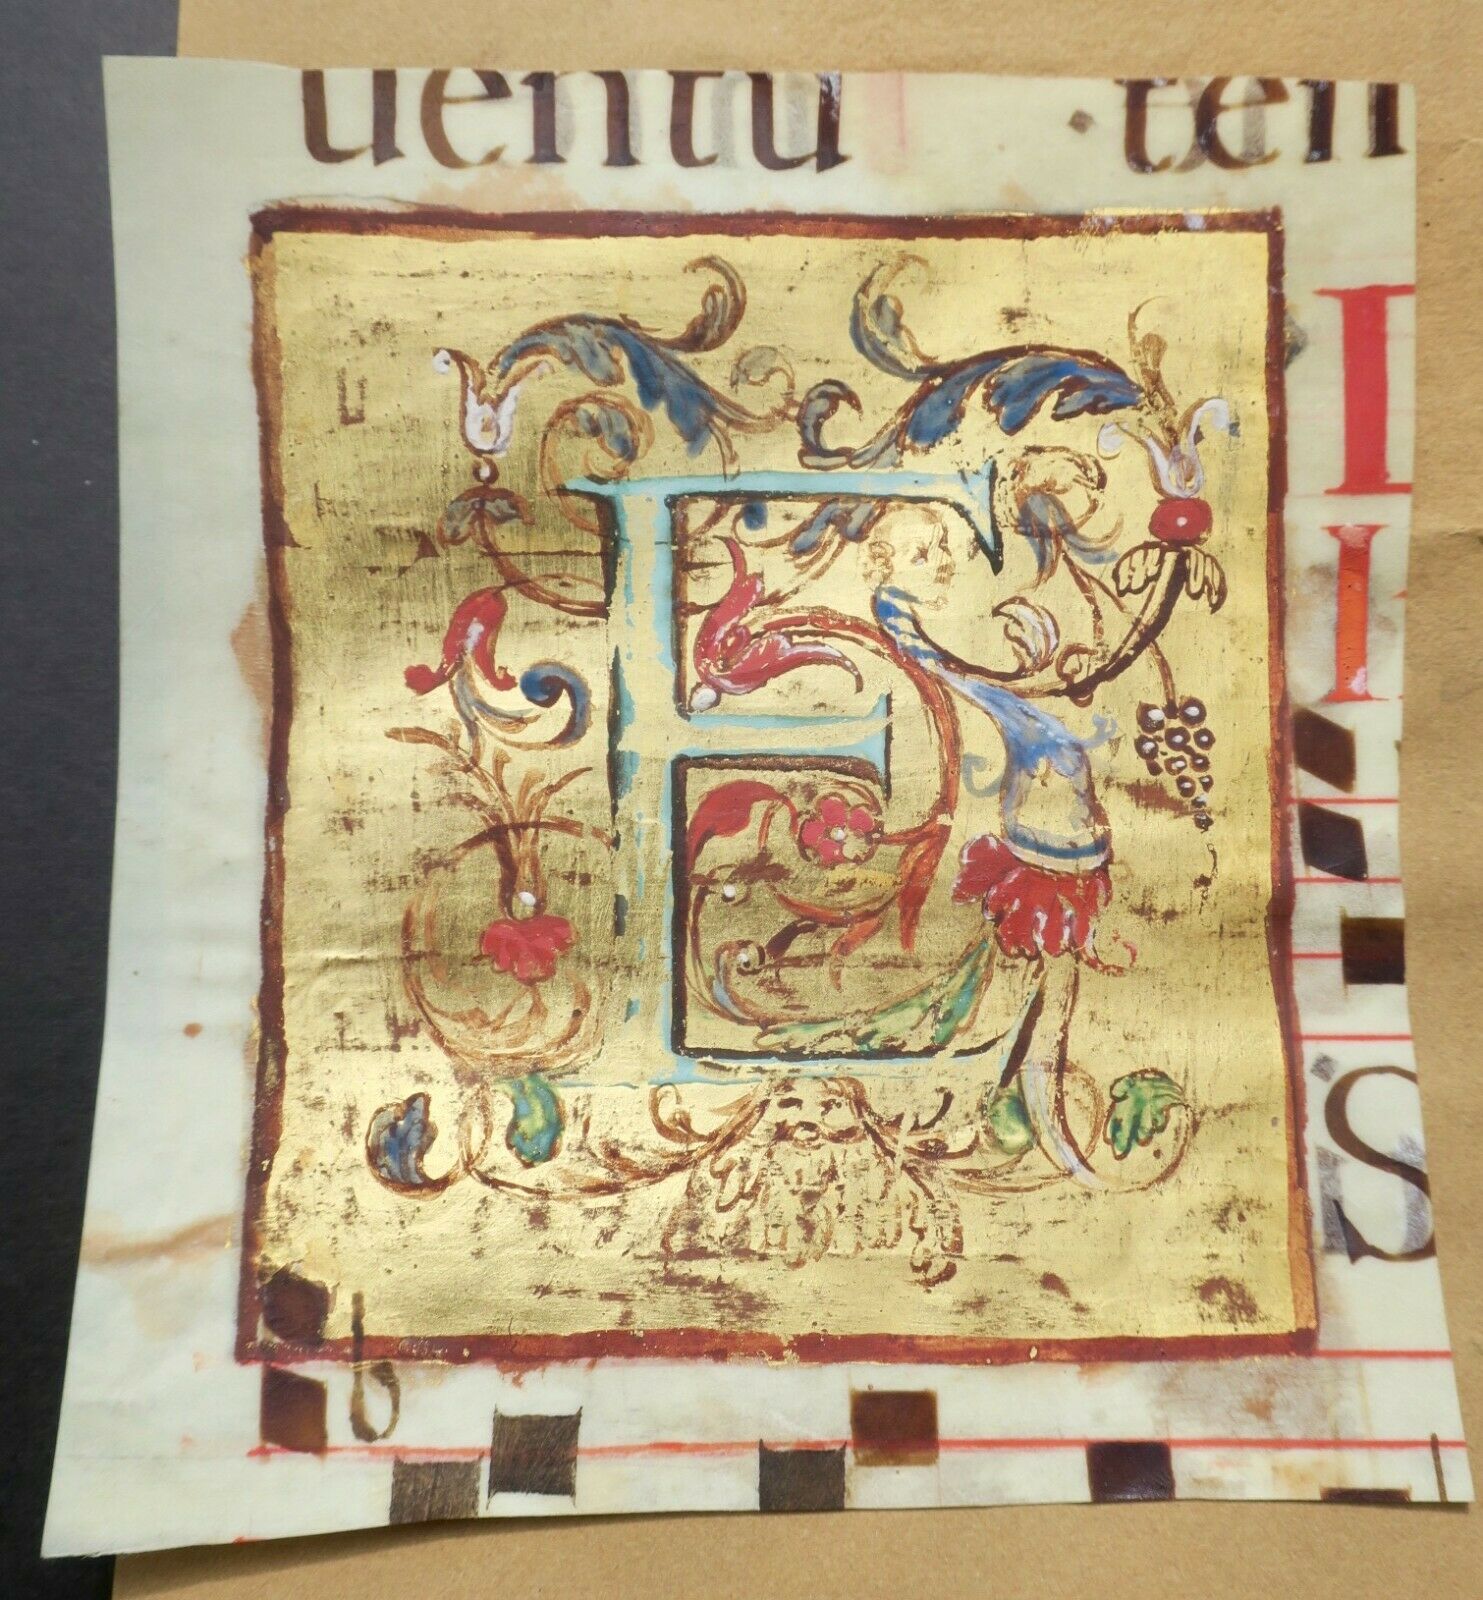 uentu · ten
E
I
S
b